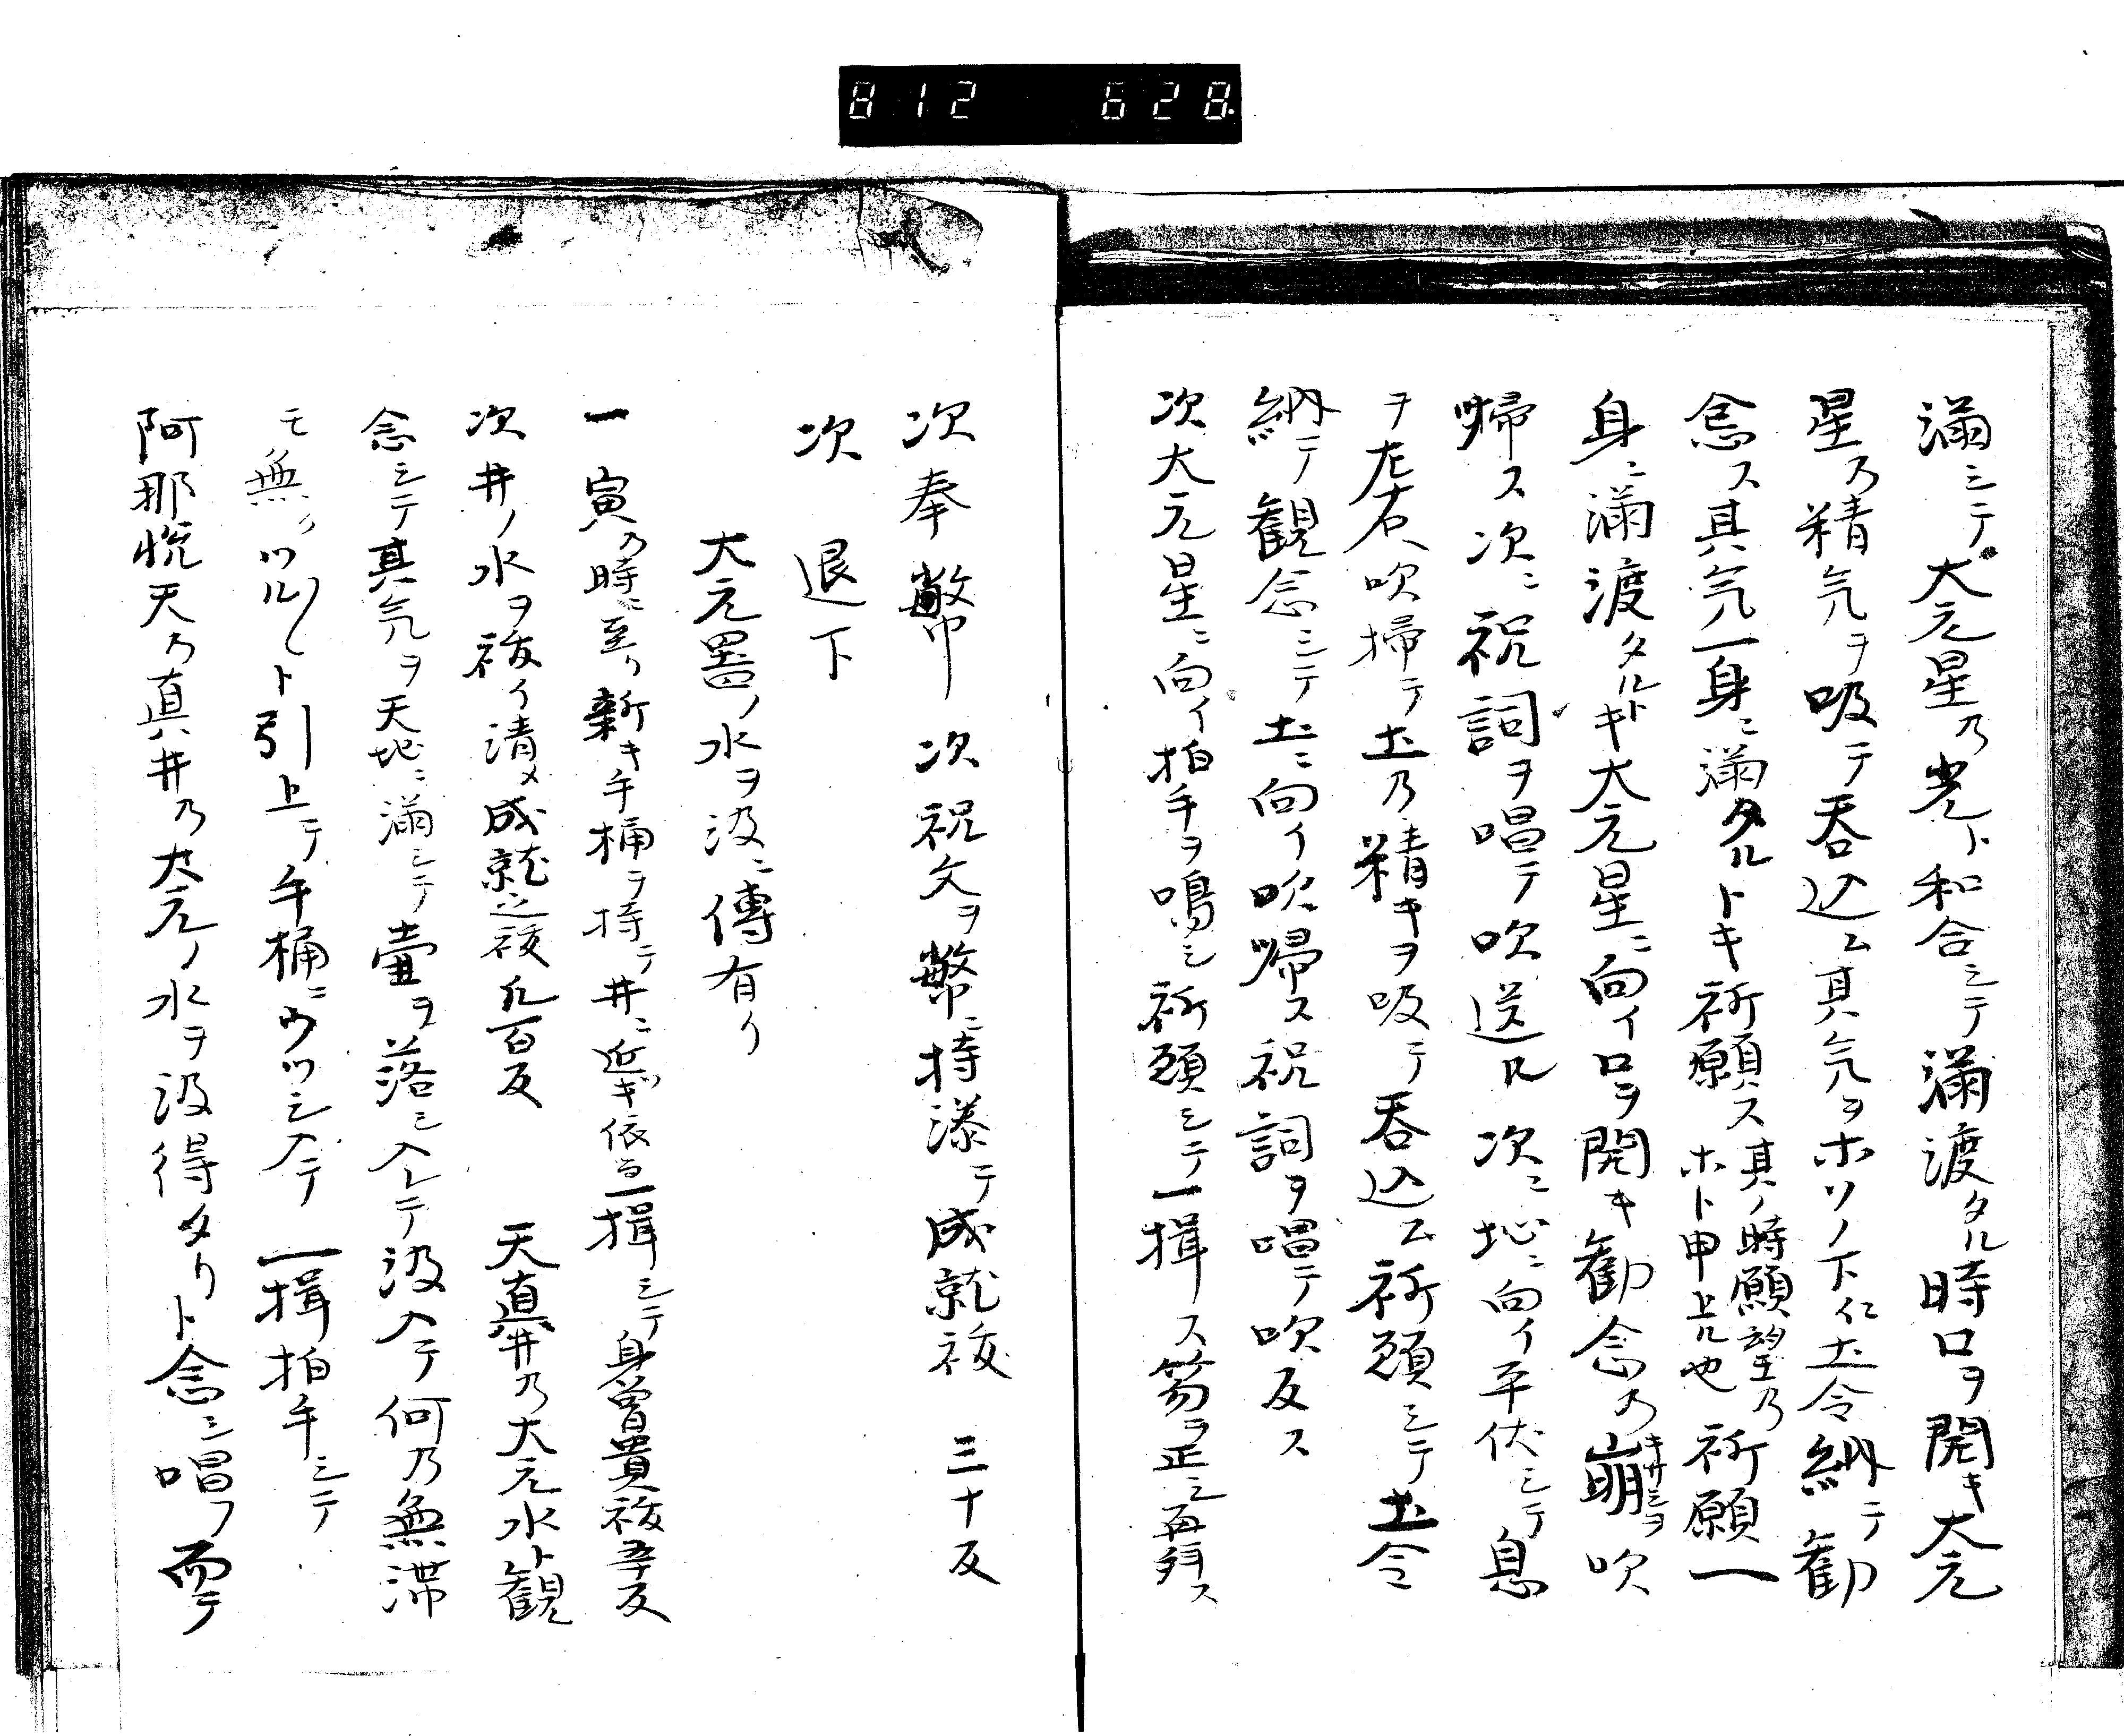 812 628
満シテ大元星乃光ト和合シテ満渡タル時口ヲ開キ大元
星乃精気ヲ吸テ呑込ム其気ヲホソノ下仁土令納テ勧
念ス其気一身ニ満タルトキ祈願ス其ノ時願望乃ホト申上ル也祈願一
身ニ満渡タルトキ大元星ニ向イ口ヲ開キ勧念乃崩キザシヲ吹
帰ス次ニ祝詞ヲ唱テ吹送ル次ニ地ニ向イ平伏シテ息
ヲ左右吹掃テ土乃精キヲ吸テ呑込ム祈願シテ土令
納テ観念シテ土ニ向イ吹帰ス祝詞ヲ唱テ吹反ス
次大元星ニ向イ拍手ヲ鳴シ祈願シテ一揖ス笏ヲ正シ再拝ス
次奉幣 次祝文ヲ幣ニ持添テ成就祓 三十反
次 退下
大元ノ水ヲ汲ニ傳有リ
一 寅乃時ニ至リ新キ手桶ヲ持テ井ニ近ギ依テ一揖シテ身曽貴祓五十反
次井ノ水ヲ祓イ清メ成就之祓凡百反 天真井乃大元水ト観
念シテ真気ヲ天地ニ満シテ壷ヲ落シ入レテ汲入テ何乃無滞
モ無クツル〱ト引上テ手桶ニウツシ入テ一揖拍手シテ
阿那悦天乃真井乃大元ノ水ヲ汲得タリト念シ唱フ而テ